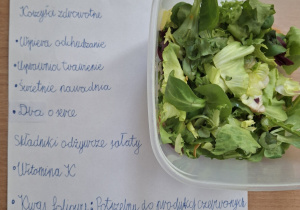 Korzyści zdrowotne
• Wspiera odchudzanie
• Usprawnia trawienie
• Świetnie nawadnia
• Dba o serce
Składniki odżywcze sałaty
• Witamina K
• Kwas foliowy: Potrzebny do produkcji czerwonych